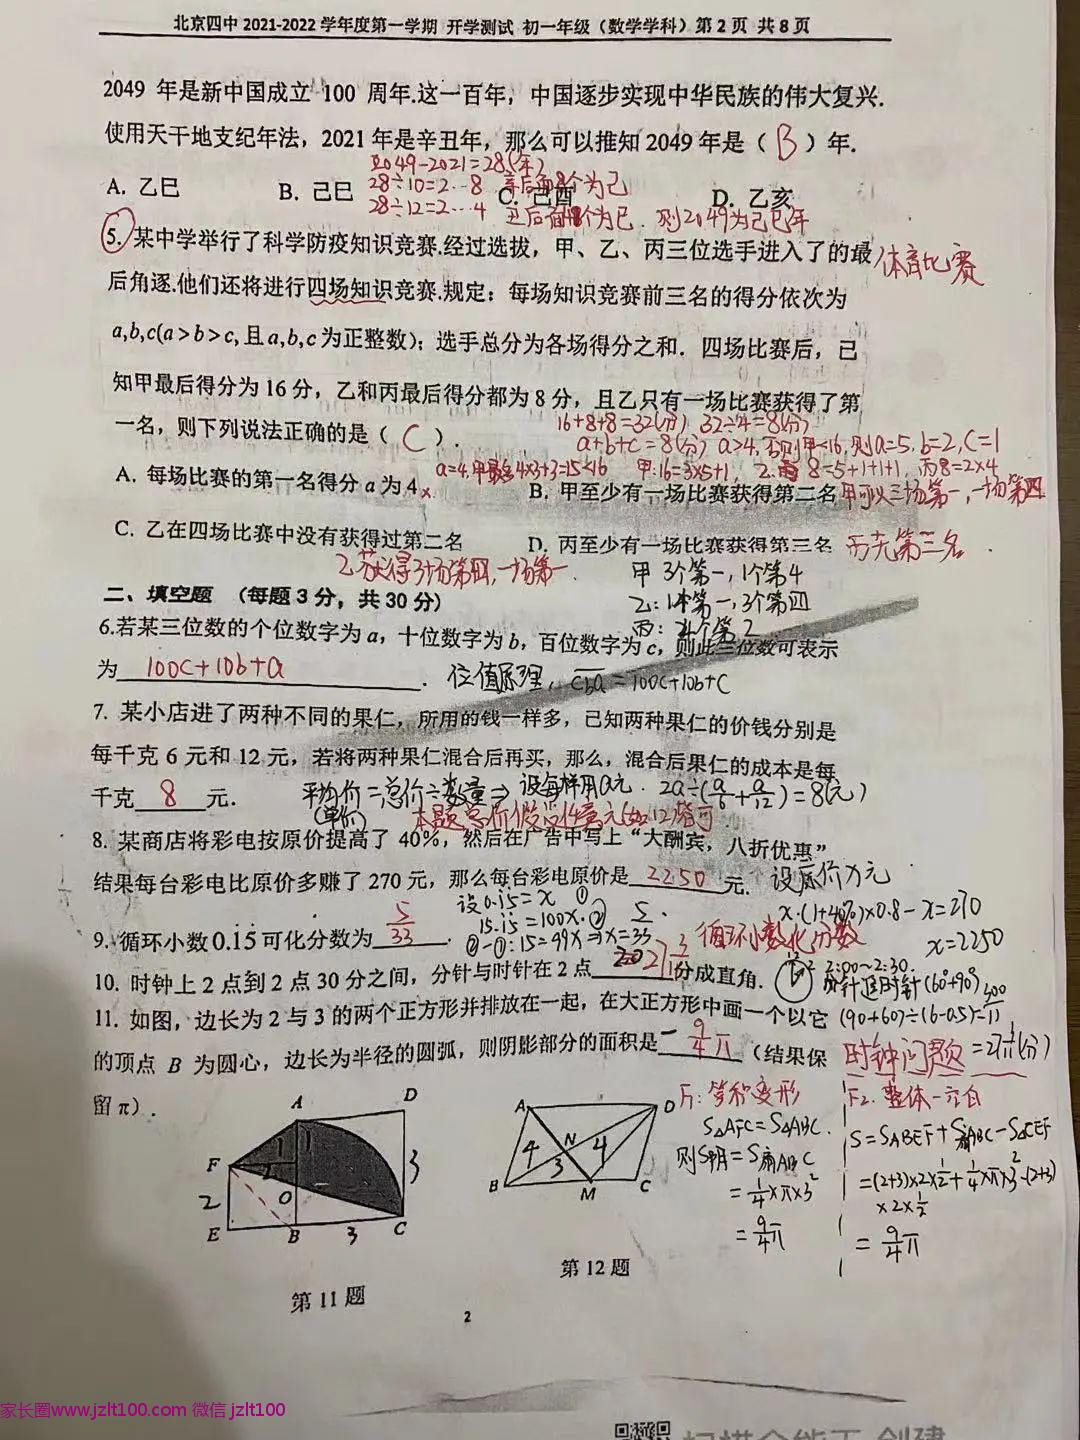 北京四中 2021-2022 学年度第一学期 开学测试 初一年级（数学学科）第 2 页 共 8 页
2049 年是新中国成立 100 周年.这一百年，中国逐步实现中华民族的伟大复兴.
使用天干地支纪年法，2021 年是辛丑年，那么可以推知 2049 年是（ B ）年.
2049-2021=28(年)
A. 乙巳 B. 己巳 C. 己酉 D. 乙亥
28÷10=2…8 辛后面8个为己
28÷12=2…4 丑后面4个为巳. 则2049为己巳年
5. 某中学举行了科学防疫知识竞赛.经过选拔，甲、乙、丙三位选手进入了的最 体育比赛
后角逐.他们还将进行四场知识竞赛.规定：每场知识竞赛前三名的得分依次为
a,b,c(a>b>c, 且a,b,c为正整数)；选手总分为各场得分之和．四场比赛后，已
知甲最后得分为 16 分，乙和丙最后得分都为 8 分，且乙只有一场比赛获得了第
16+8+8=32(分) 32÷4=8(分)
一名，则下列说法正确的是（ C ）.
a+b+c=8(分) a>4, 否则甲<16, 则a=5, b=2, c=1
a=4, 甲最多4×3+3=15<16 甲:16=3×5+1, 乙: 8=5+1+1+1, 丙8=2×4
A. 每场比赛的第一名得分 a 为 4 × B. 甲至少有一场比赛获得第二名 甲可以三场第一,一场第四
C. 乙在四场比赛中没有获得过第二名 D. 丙至少有一场比赛获得第三名 丙无第三名
乙获得3场第四,一场第一.
甲 3个第一, 1个第4
二、填空题 （每题 3 分，共 30 分）
乙: 1个第一, 3个第四
丙: 4个第2
6.若某三位数的个位数字为 a，十位数字为 b，百位数字为 c，则此三位数可表示
为 100c+10b+a . 位值原理, cba = 100c+10b+c
7. 某小店进了两种不同的果仁，所用的钱一样多，已知两种果仁的价钱分别是
每千克 6 元和 12 元，若将两种果仁混合后再买，那么，混合后果仁的成本是每
千克 8 元. 平均价=总价÷数量⇒设每样用a元. 2a÷(a/6+a/12)=8(元)
(单价) 本题总价假设任意元(如12)皆可
8. 某商店将彩电按原价提高了 40%，然后在广告中写上“大酬宾，八折优惠”
结果每台彩电比原价多赚了 270 元，那么每台彩电原价是 2250 元. 设原价为x元
设0.15=x ① x·(1+40%)×0.8-x=270
15.15=100x. ②
9. 循环小数0.1̇5̇可化分数为 5/33 . ②-①:15=99x⇒x=5/33 循环小数化分数 x=2250
10. 时钟上 2 点到 2 点 30 分之间，分针与时针在 2 点 27 3/11 分成直角. 2:00~2:30.
分针追时针(60+90°)
11. 如图，边长为 2 与 3 的两个正方形并排放在一起，在大正方形中画一个以它 (90+60)÷(6-0.5)=300/11
的顶点 B 为圆心，边长为半径的圆弧，则阴影部分的面积是 9/4π （结果保 时钟问题 =27 3/11(分)
留 π）.
F1: 等积变形
S△AFC=S△ABC.
则S阴=S扇ABC
=1/4×π×3²
=9/4π
F2. 整体-空白
S=SABEF+S扇ABC-S△CEF
=(2+3)×2×1/2+1/4×π×3²-(2+3)
×2×1/2
=9/4π
A D
F 1 1 2 3
2 O
E B 3 C
A D
4 N 4
3
B M C
第 11 题
第 12 题
2
家长圈www.jzlt100.com 微信 jzlt100